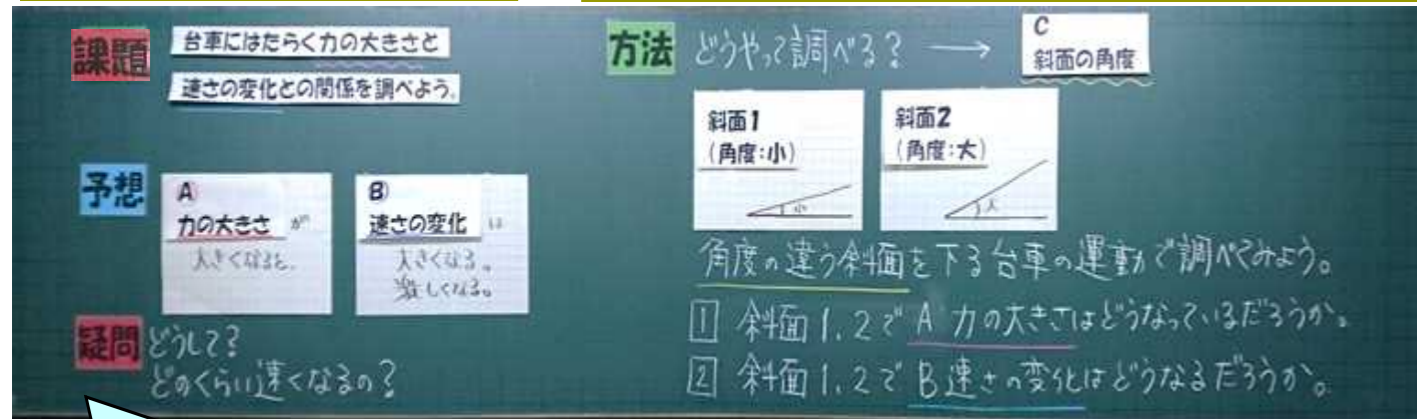 課題
台車にはたらく力の大きさと
速さの変化との関係を調べよう。
予想
A
力の大きさ が
大きくなると、
B
速さの変化 は
大きくなる。
激しくなる。
疑問
どうして?
どのくらい速くなるの?
方法 どうやって調べる? →
C
斜面の角度
斜面1
(角度:小)
小
斜面2
(角度:大)
大
角度の違う斜面を下る台車の運動で調べてみよう。
1 斜面1.2で A 力の大きさはどうなっているだろうか。
2 斜面1.2で B 速さの変化はどうなるだろうか。